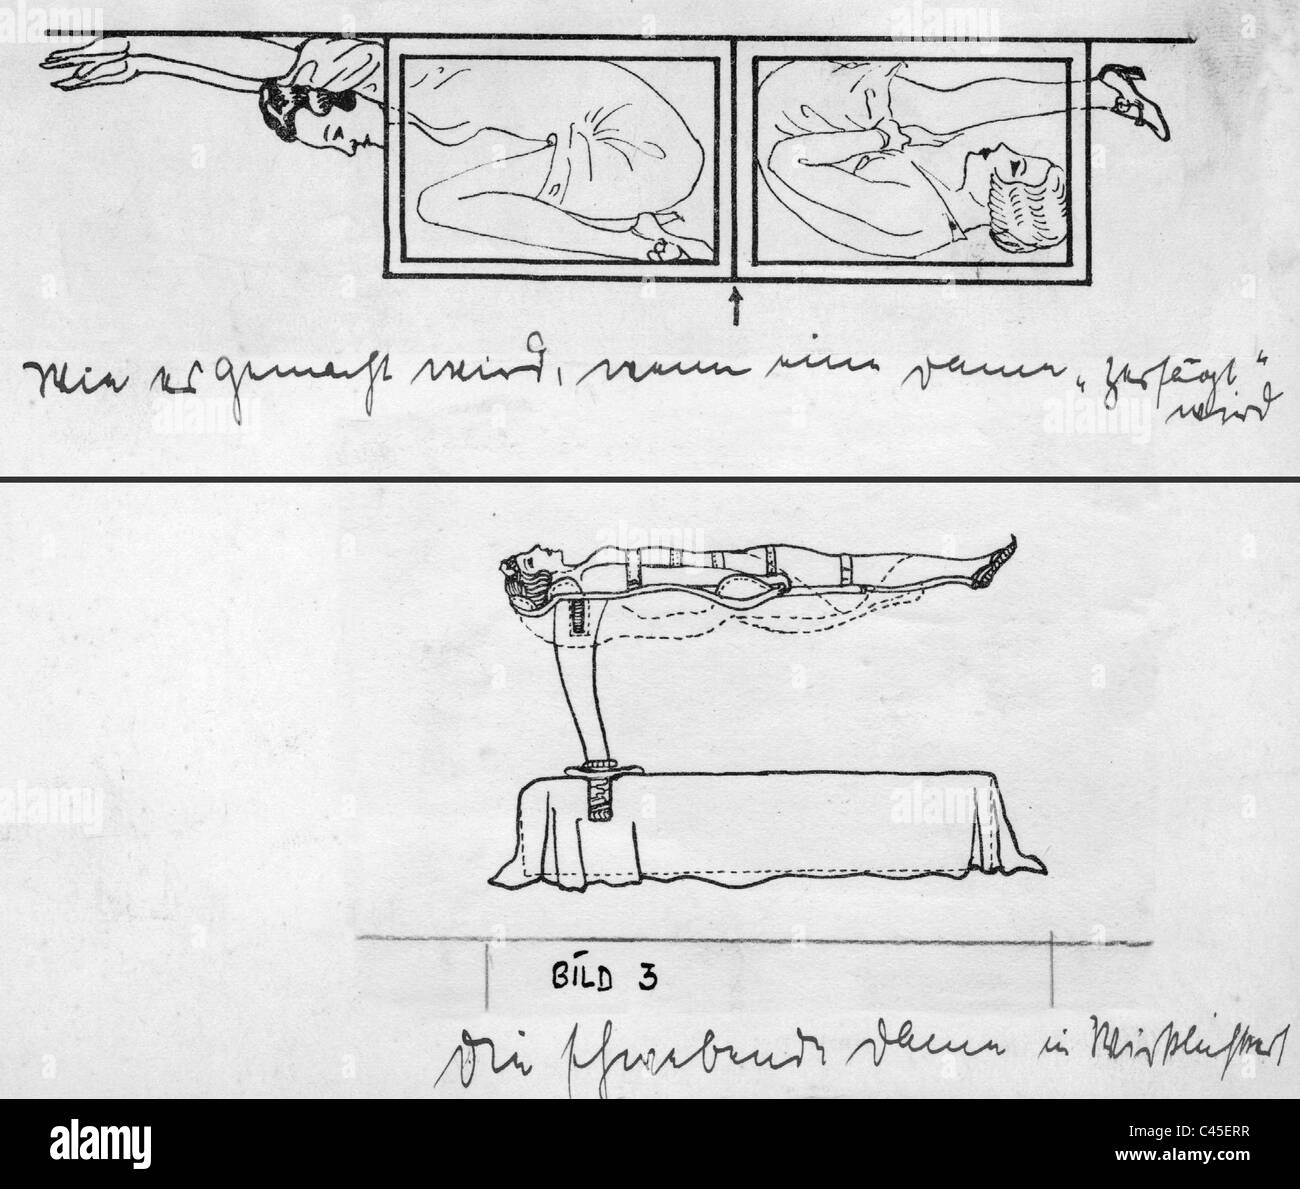 Wie es gemacht wird, wenn eine Dame „zersägt“
wird
BILD 3
Die schwebende Dame in Wirklichkeit
alamy
Image ID: C45ERR
www.alamy.com